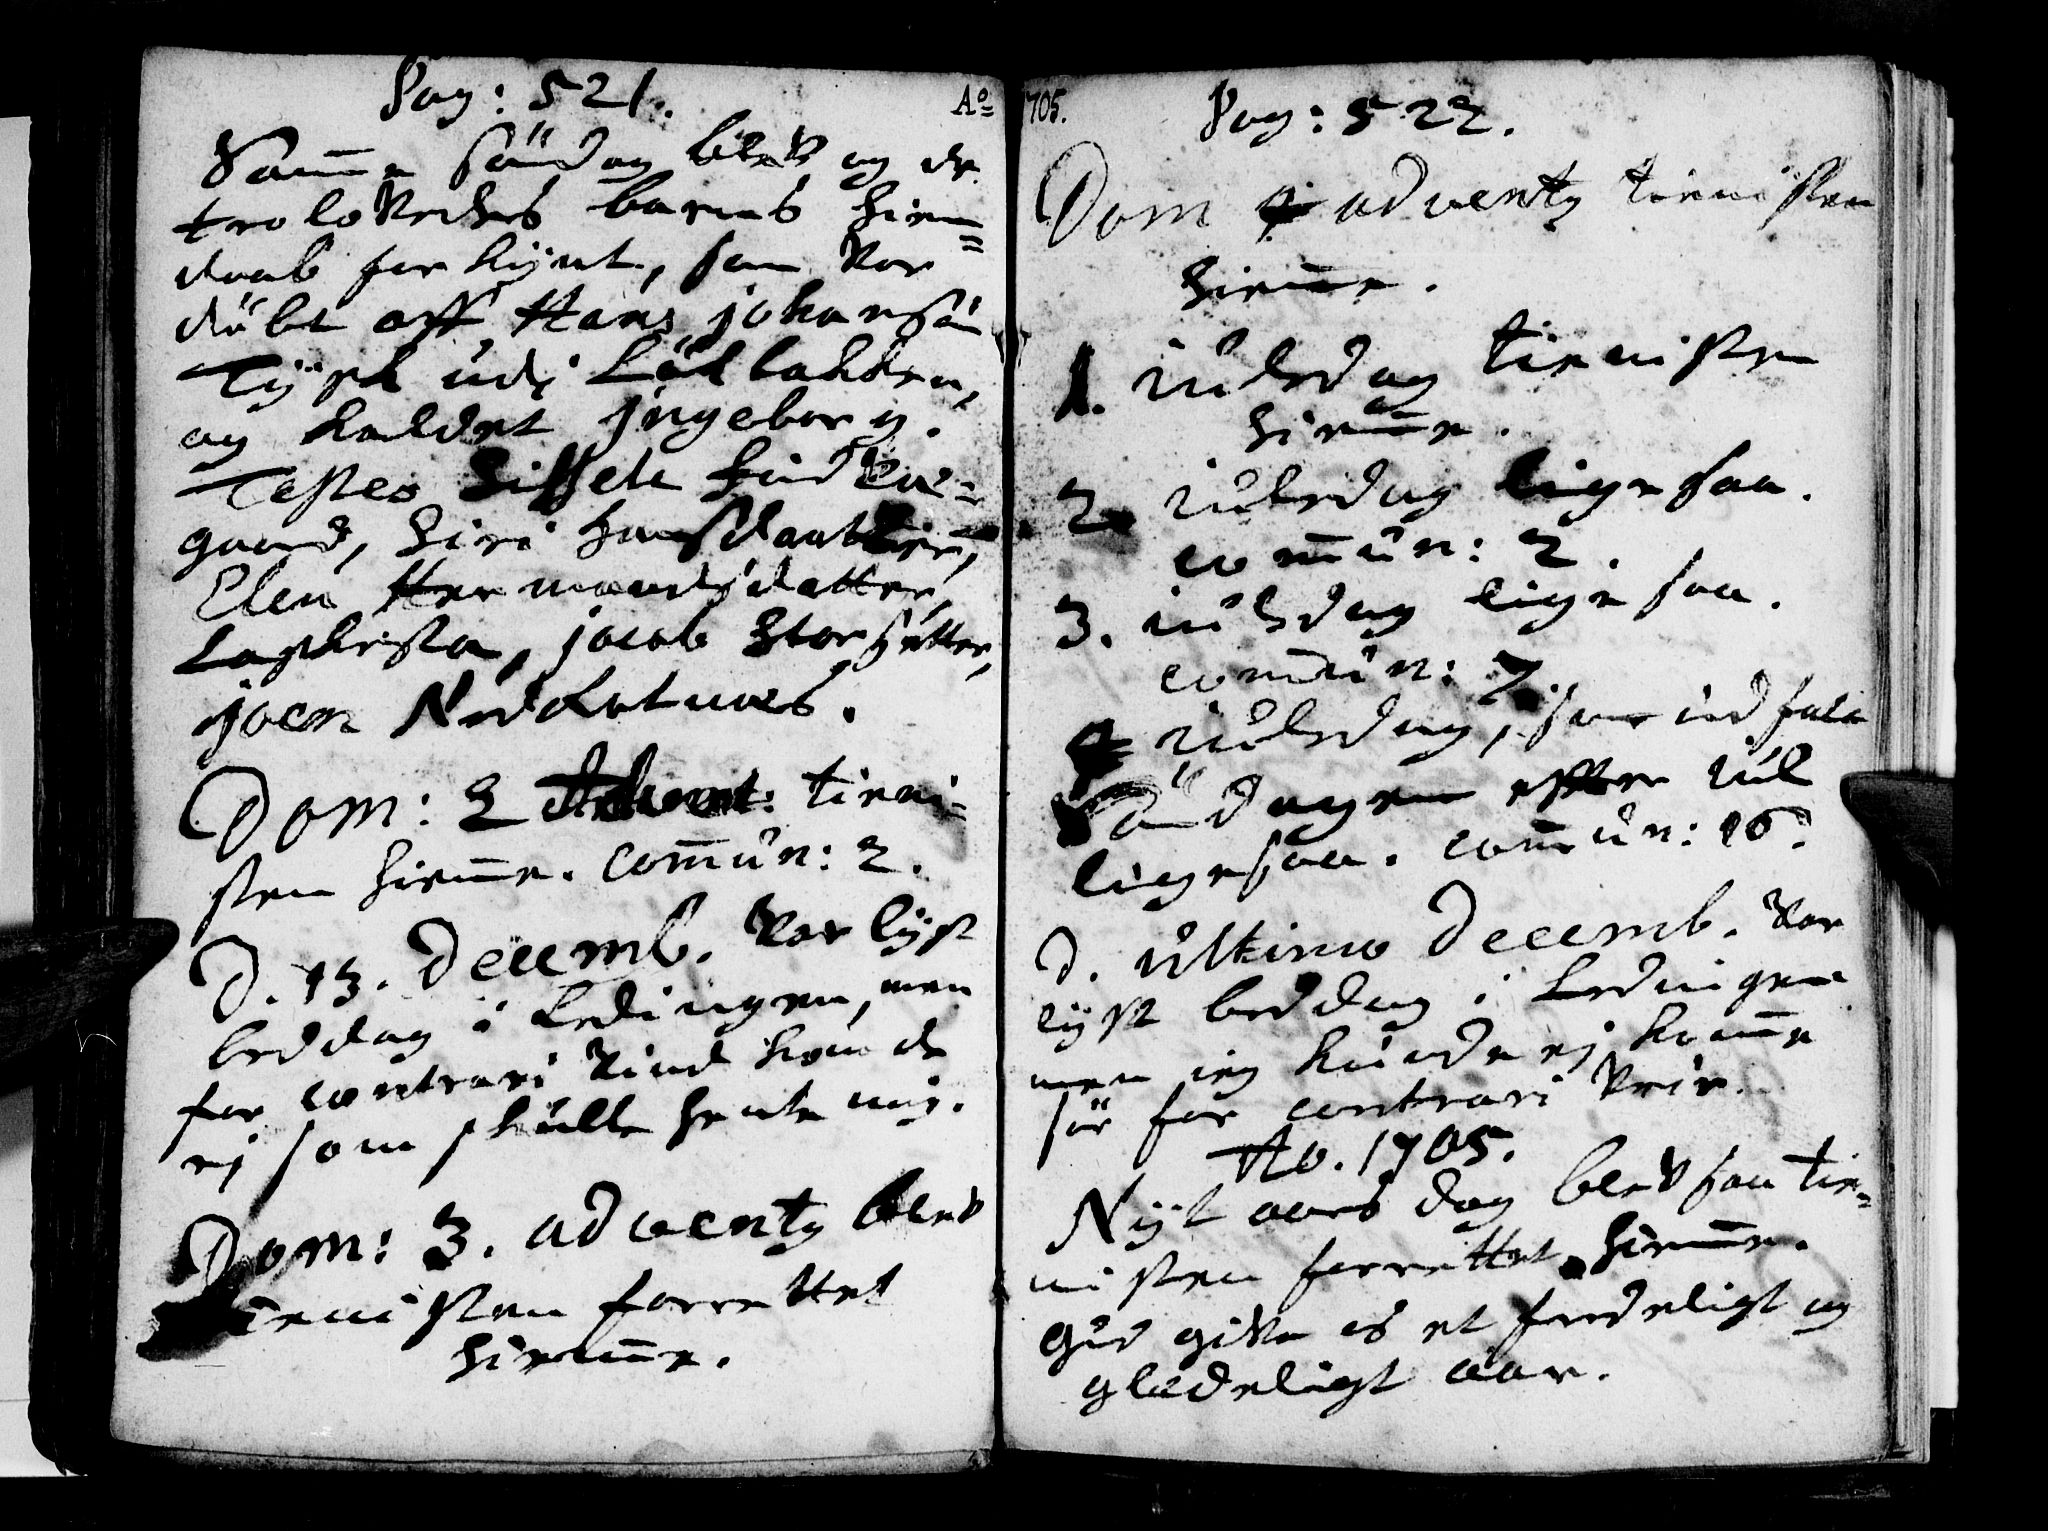 Pag: 521.
Aº
Sam̄e Söndag blev og de
trolovedes barns hiem=
daab forkÿnt, som var
döbt aff Hans johansön
Tÿsk udj
og kaldet jngeborg.
Testes Sissele
gaard, Siri Hansdaatter,
Elen Hermandsdatter,
jacob Storsetter,
joen
Dom: 2 Advent: tieni-
sten hiem̄e. com̄un: 2.
D. 13. Decemb. var lÿst
beddag i Ledingen, men
for contrari vind kom de
ej som skulle hente mig.
Dom: 3. adventq blev
tienisten forrettet
hiem̄e.
1705.
Pag: 522.
Dom 4 adventq tienisten
hiem̄e.
1. juledag tienisten
hiem̄e.
2 juledag ligesaa.
com̄un: 2.
3. juledag ligesaa.
com̄un: 7.
4 juledag, som indfalt
Söndagen effter jul
ligesaa. com̄un: 16.
D. ultimo Decemb. var
lÿst beddag i Ledingen
men jeg kunde ej kom̄e
for contrari veir.
Ao. 1705.
Nÿt aars dag blev saa tie=
nisten forrettet hiem̄e.
Gud give os et fredeligt og
glædeligt aar.